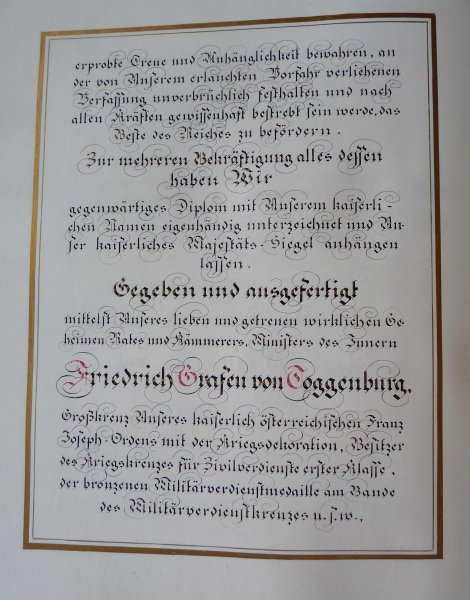 erprobte Treue und Anhänglichkeit bewahren, an
der von Unserem erlauchten Vorfahr verliehenen
Verfassung unverbrüchlich festhalten und nach
allen Kräften gewissenhaft bestrebt sein werde, das
Beste des Reiches zu befördern.
Zur mehreren Bekräftigung alles dessen
haben Wir
gegenwärtiges Diplom mit Unserem kaiserli-
chen Namen eigenhändig unterzeichnet und Un-
ser kaiserliches Majestäts-Siegel anhängen
lassen.
Gegeben und ausgefertigt
mittelst Unseres lieben und getreuen wirklichen Ge-
heimen Rates und Kämmerers, Ministers des Innern
Friedrich Grafen von Toggenburg,
Großkreuz Unseres kaiserlich österreichischen Franz
Joseph-Ordens mit der Kriegsdekoration, Besitzer
des Kriegskreuzes für Zivilverdienste erster Klasse,
der bronzenen Militärverdienstmedaille am Bande
des Militärverdienstkreuzes u. s. w.,